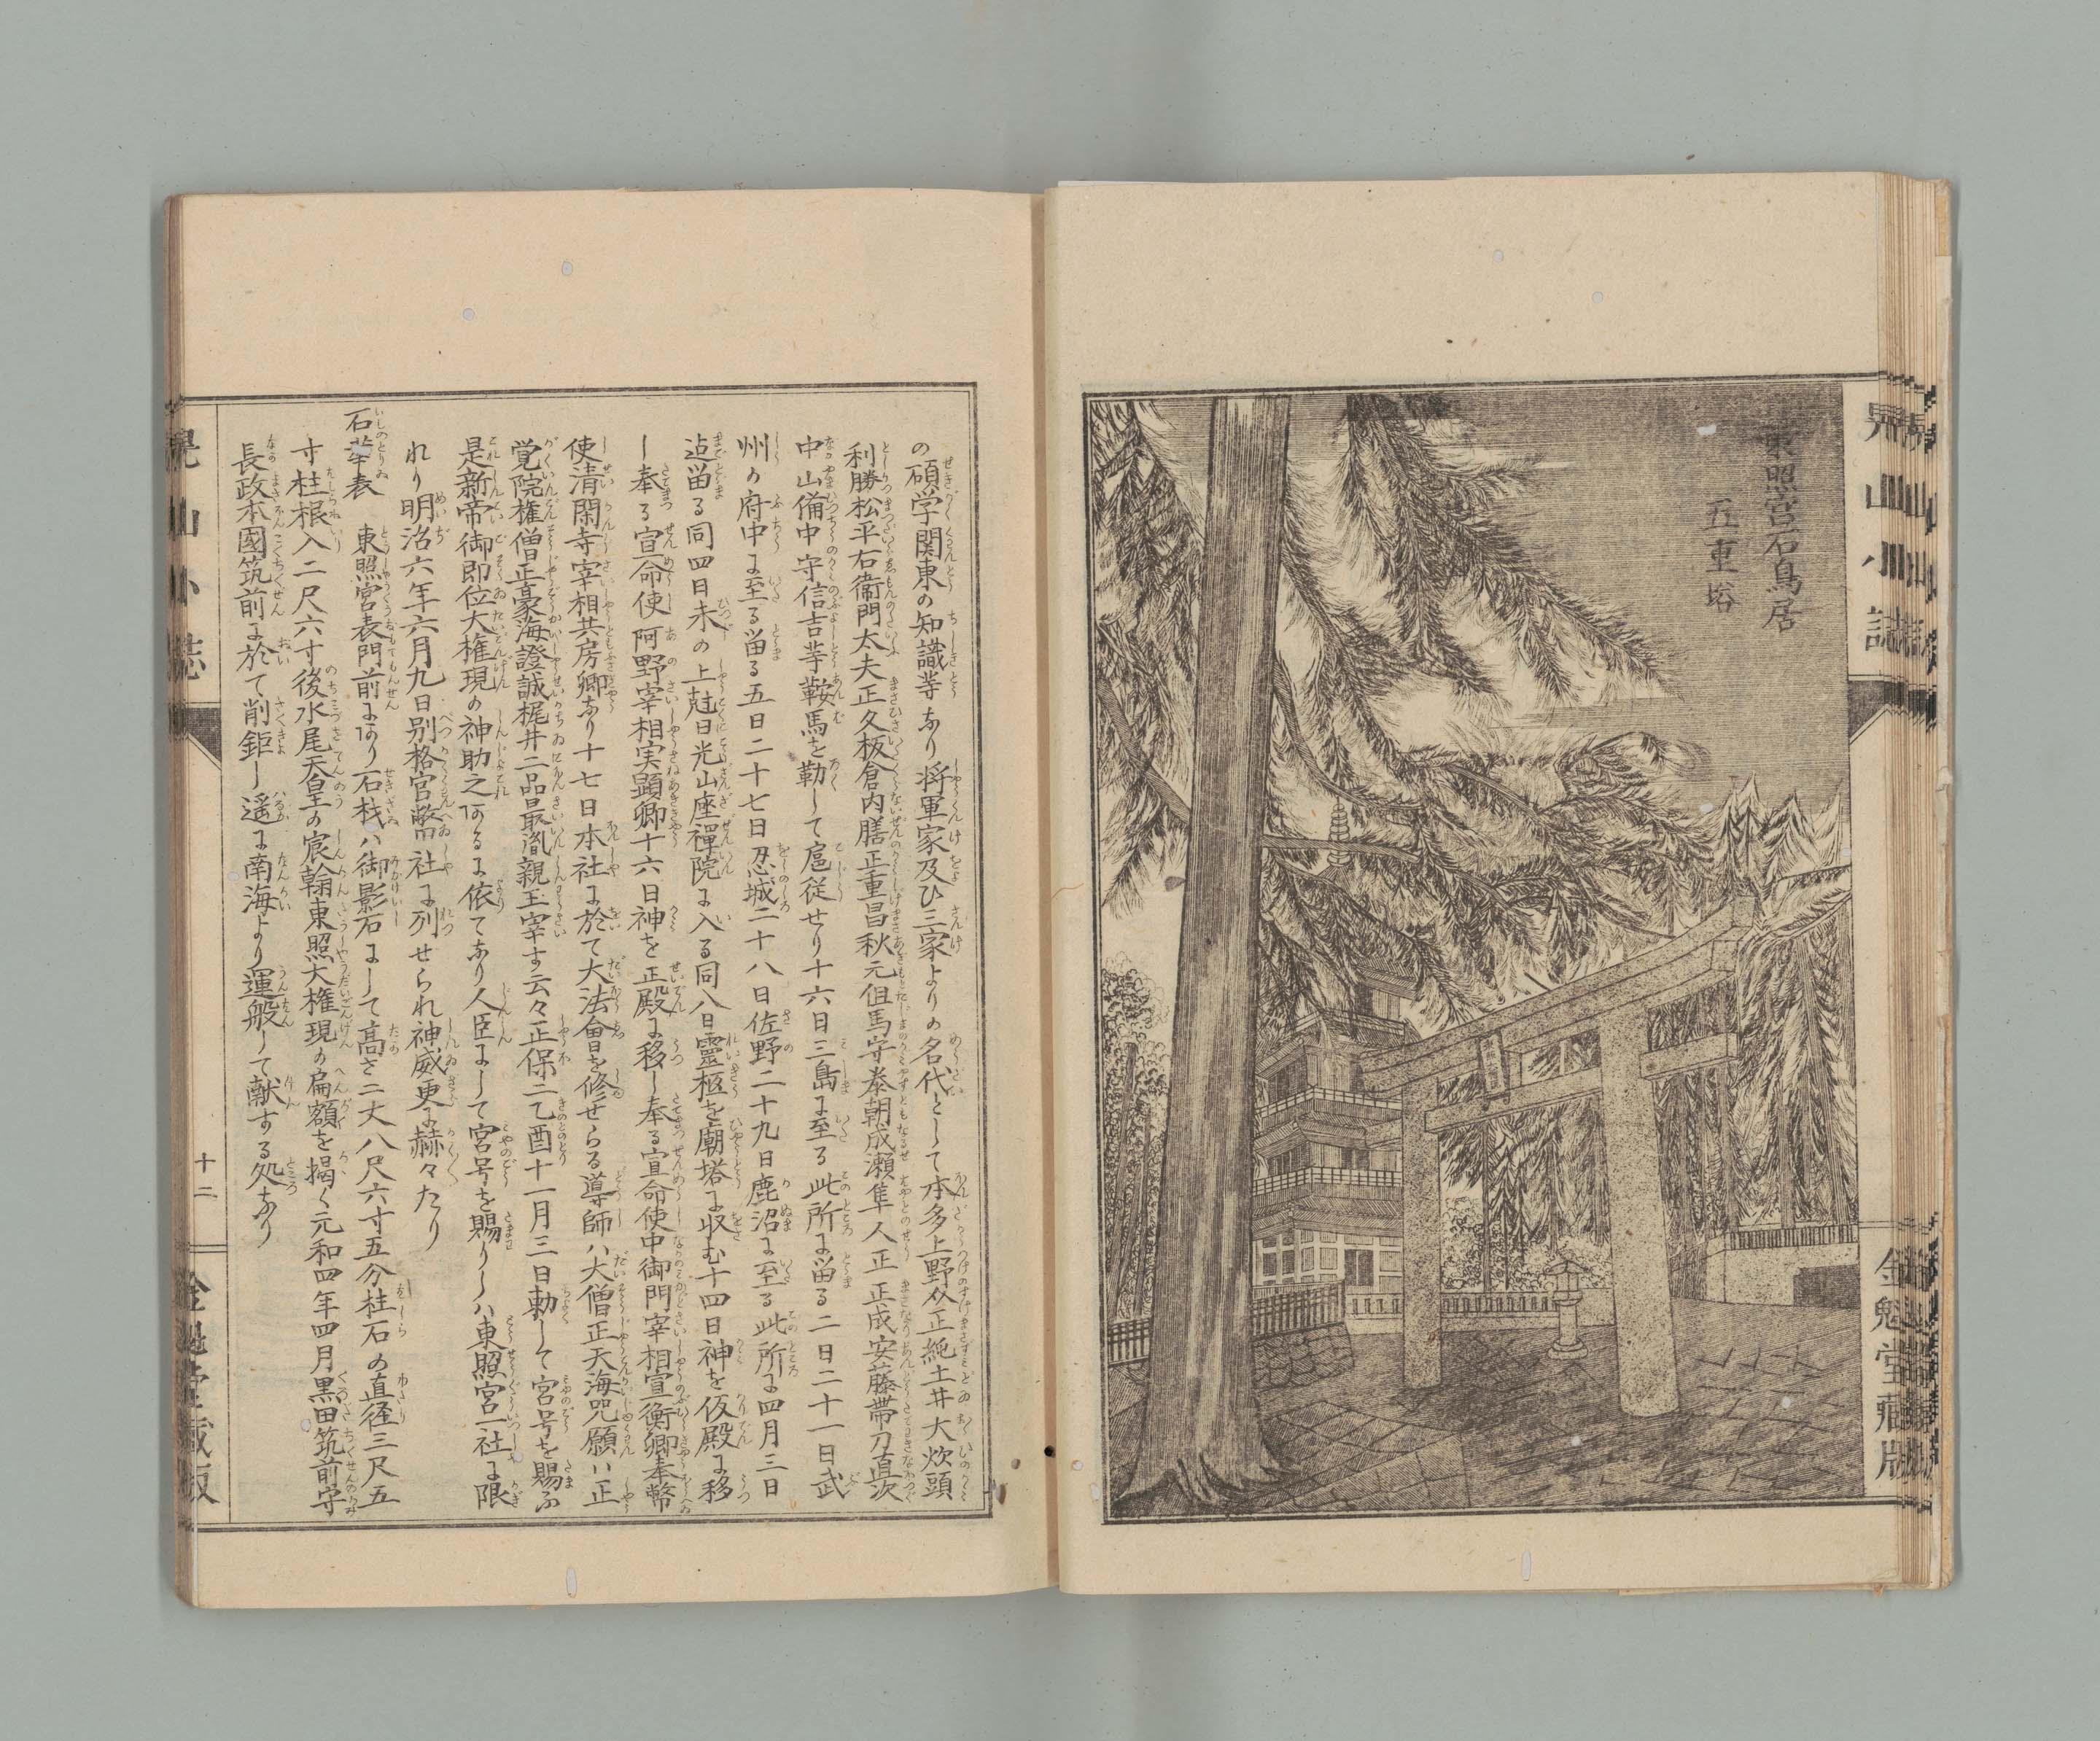 東照宮石鳥居
五重塔
晃山小誌
金魁堂蔵版
の碩学関東の知識等なり将軍家及ひ三家よりの名代として本多上野介正純土井大炊頭
利勝松平右衛門太夫正久板倉内膳正重昌秋元但馬守泰朝成瀬隼人正正成安藤帯刀直次
中山備中守信吉等鞍馬を勒して扈従せり十六日三島に至る此所に留る二日二十一日武
州の府中に至る留る五日二十七日忍城二十八日佐野二十九日鹿沼に至る此所に四月三日
迠留る同四日未の上尅日光山座禅院に入る同八日靈柩を廟塔に収む十四日神を仮殿に移
し奉る宣命使阿野宰相実顕卿十六日神を正殿に移し奉る宣命使中御門宰相宣衡卿奉幣
使清閑寺宰相共房卿なり十七日本社に於て大法會を修せらる導師ハ大僧正天海咒願ハ正
覚院権僧正豪海證誠梶井二品最胤親王宰す云々正保二乙酉十一月三日勅して宮号を賜ふ
是新帝御即位大権現の神助之あるに依てなり人臣にして宮号を賜りしハ東照宮一社に限
れり明治六年六月九日別格官幣社に列せられ神威更に赫々たり
石華表　東照宮表門前にあり石材ハ御影石にして高さ二丈八尺六寸五分柱石の直径三尺五
寸柱根入二尺六寸後水尾天皇の宸翰東照大権現の扁額を掲く元和四年四月黒田筑前守
長政本國筑前に於て削鉅し遥に南海より運般して献する処なり
十二